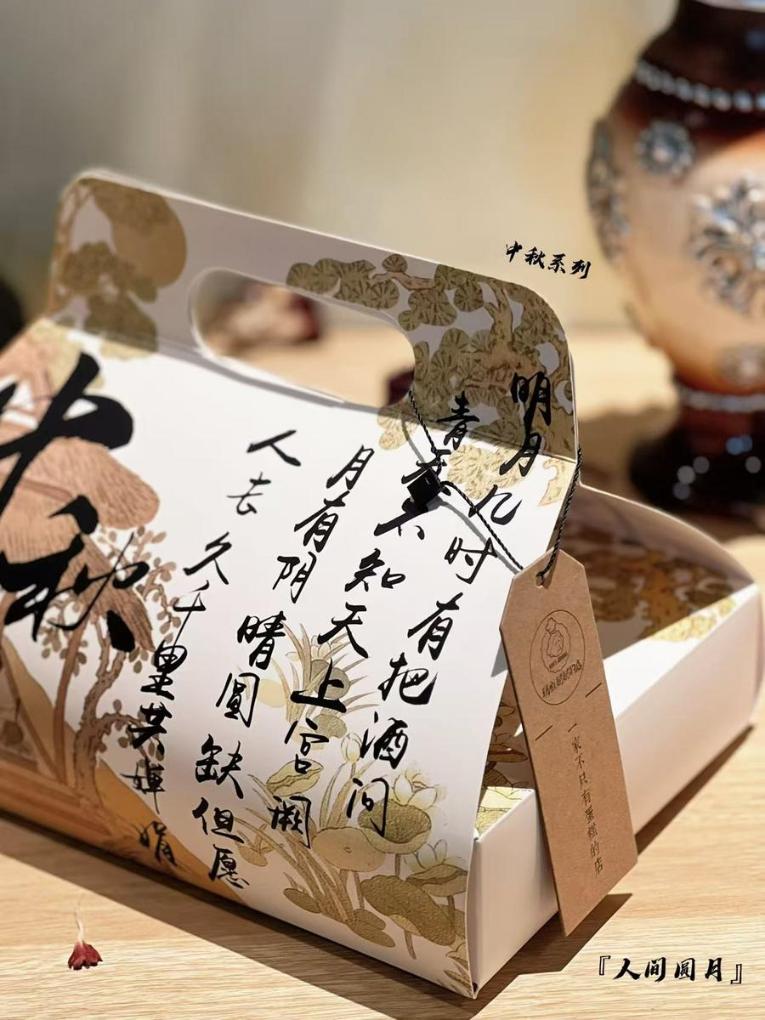 中秋系列
明月几时有把酒问
青天不知天上宫阙
月有阴晴圓缺但愿
人长久千里共婵娟
中秋
一家不只有蛋糕的店
『人间圓月』